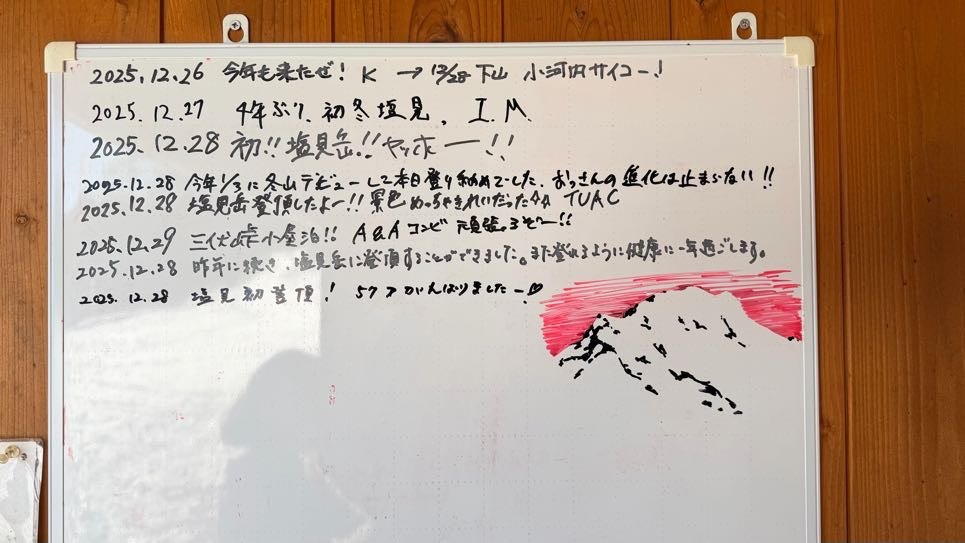 2025.12.26 今年も来たぜ! K → 12/28 下山 小河内サイコー!
2025.12.27 4年ぶり、初冬塩見、I.M.
2025.12.28 初!!塩見岳!!ヤッホー!!
2025.12.28 今年1/3に冬山デビューして本日登り納めでした、おっさんの進化は止まらない!!
2025.12.28 塩見岳登頂したよー!!景色めっちゃきれいだった TUAC
2025.12.29 三伏峠小屋泊!! A&Aコンビ 頑張るぞ〜!!
2025.12.28 昨年に続き、塩見岳に登頂することができました。また登れるように健康に一年過ごします。
2025.12.28 塩見初登頂! 57才がんばりましたー♡